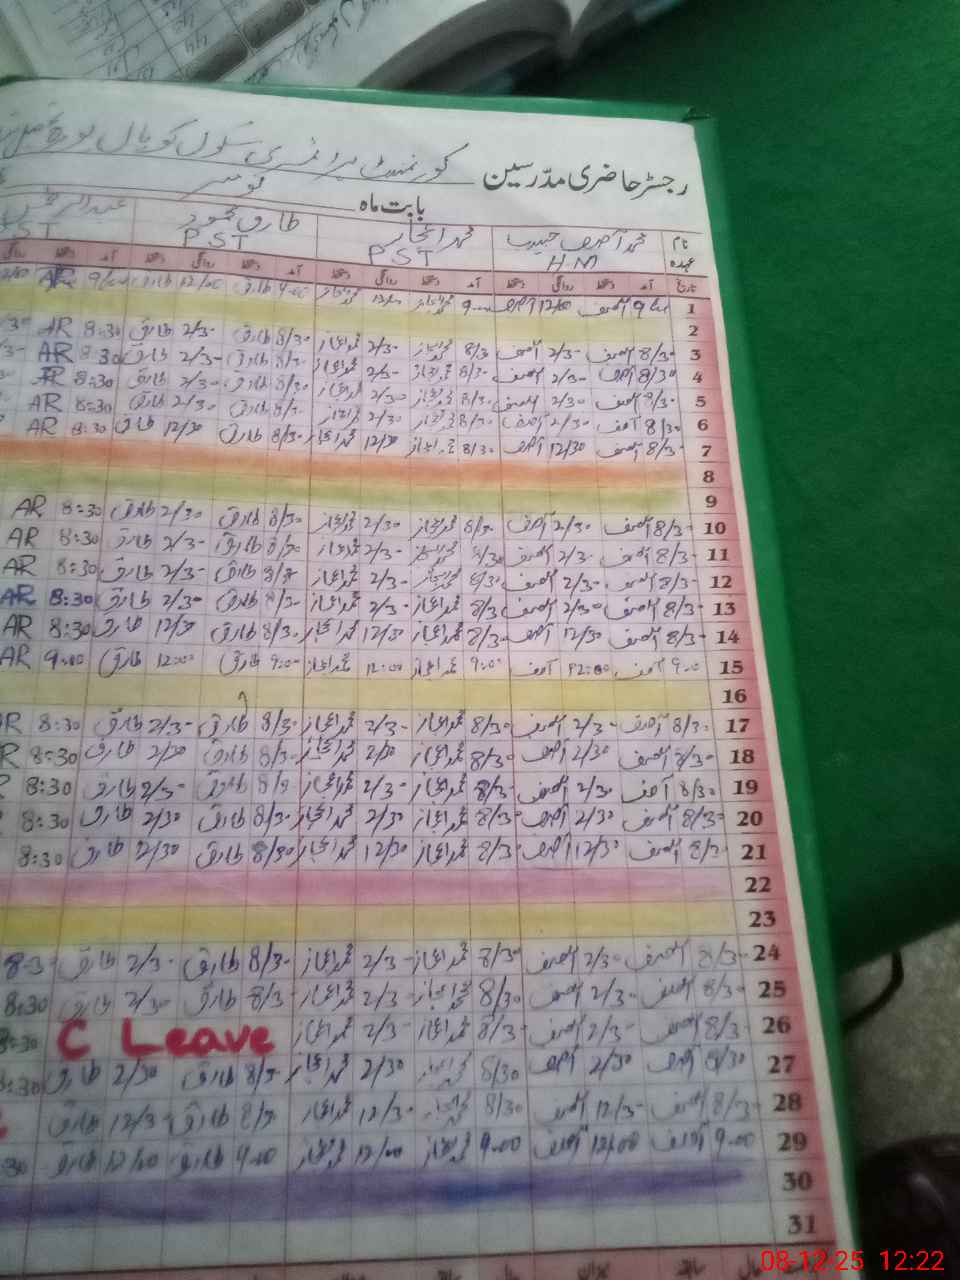 رجسٹر حاضری مدرسین گورنمنٹ پرائمری سکول
بابت ماہ نومبر
نام محمد آصف حبیب محمد اعجاز طارق محمود
عہدہ H.M PST PST PST
تاریخ آمد دستخط روانگی دستخط آمد دستخط روانگی دستخط آمد دستخط روانگی دستخط
1 9 آصف 12/00 آصف 9-00 محمد اعجاز 12/00 محمد اعجاز 9-00 طارق 12/00 طارق 9/00 AR
2
3 8/30 آصف 2/30 آصف 8/30 محمد اعجاز 2/30 محمد اعجاز 8/30 طارق 2/30 طارق 8:30 AR
4 8/30 آصف 2/30 آصف 8/30 محمد اعجاز 2/30 محمد اعجاز 8/30 طارق 2/30 طارق 8:30 AR
5 8/30 آصف 2/30 آصف 8/30 محمد اعجاز 2/30 محمد اعجاز 8/30 طارق 2/30 طارق 8:30 AR
6 8/30 آصف 2/30 آصف 8/30 محمد اعجاز 2/30 محمد اعجاز 8/30 طارق 2/30 طارق 8:30 AR
7 8/30 آصف 12/30 آصف 8/30 محمد اعجاز 12/30 محمد اعجاز 8/30 طارق 12/30 طارق 8:30 AR
8
9
10 8/30 آصف 2/30 آصف 8/30 محمد اعجاز 2/30 محمد اعجاز 8/30 طارق 2/30 طارق 8:30 AR
11 8/30 آصف 2/30 آصف 8/30 محمد اعجاز 2/30 محمد اعجاز 8/30 طارق 2/30 طارق 8:30 AR
12 8/30 آصف 2/30 آصف 8/30 محمد اعجاز 2/30 محمد اعجاز 8/30 طارق 2/30 طارق 8:30 AR
13 8/30 آصف 2/30 آصف 8/30 محمد اعجاز 2/30 محمد اعجاز 8/30 طارق 2/30 طارق 8:30 AR
14 8/30 آصف 12/30 آصف 8/30 محمد اعجاز 12/30 محمد اعجاز 8/30 طارق 12/30 طارق 8:30 AR
15 9:00 آصف 12:00 آصف 9:00 محمد اعجاز 12:00 محمد اعجاز 9:00 طارق 12:00 طارق 9:00 AR
16
17 8/30 آصف 2/30 آصف 8/30 محمد اعجاز 2/30 محمد اعجاز 8/30 طارق 2/30 طارق 8:30
18 8/30 آصف 2/30 آصف 8/30 محمد اعجاز 2/30 محمد اعجاز 8/30 طارق 2/30 طارق 8:30
19 8/30 آصف 2/30 آصف 8/30 محمد اعجاز 2/30 محمد اعجاز 8/30 طارق 2/30 طارق 8:30
20 8/30 آصف 2/30 آصف 8/30 محمد اعجاز 2/30 محمد اعجاز 8/30 طارق 2/30 طارق 8:30
21 8/30 آصف 12/30 آصف 8/30 محمد اعجاز 12/30 محمد اعجاز 8/30 طارق 2/30 طارق 8:30
22
23
24 8/30 آصف 2/30 آصف 8/30 محمد اعجاز 2/30 محمد اعجاز 8/30 طارق 2/30 طارق 8-3
25 8/30 آصف 2/30 آصف 8/30 محمد اعجاز 2/30 محمد اعجاز 8/30 طارق 2/30 طارق 8:30
26 8/30 آصف 2/30 آصف 8/30 محمد اعجاز 2/30 محمد اعجاز C Leave
27 8/30 آصف 2/30 آصف 8/30 محمد اعجاز 2/30 محمد اعجاز 8/30 طارق 2/30 طارق
28 8/30 آصف 12/30 آصف 8/30 محمد اعجاز 12/30 محمد اعجاز 8/30 طارق 12/30 طارق
29 9-00 آصف 12/00 آصف 9-00 محمد اعجاز 12/00 محمد اعجاز 9-00 طارق 12/00 طارق
30
31
08-12-25 12:22